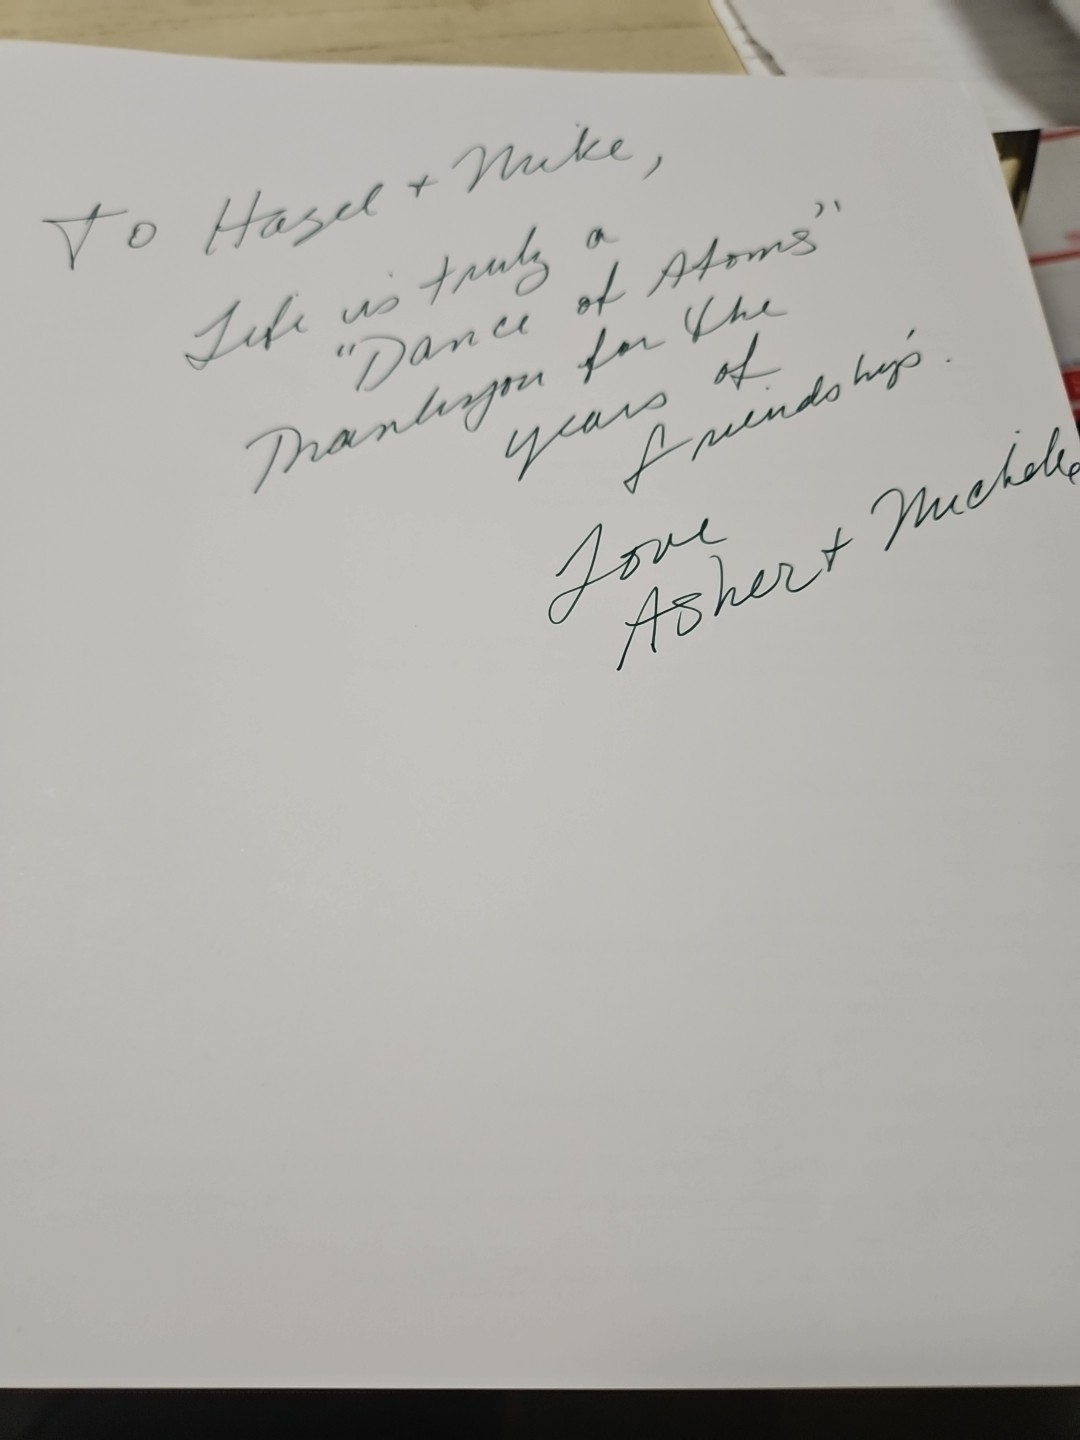 To Hazel + Mike,
Life is truly a
"Dance of Atoms"
Thankyou for the
years of
friendship.
Love
Asher + Michele